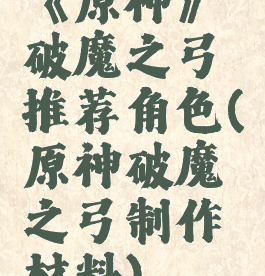 《原神》
破魔之弓
推荐角色(
原神破魔
之弓制作
材料)